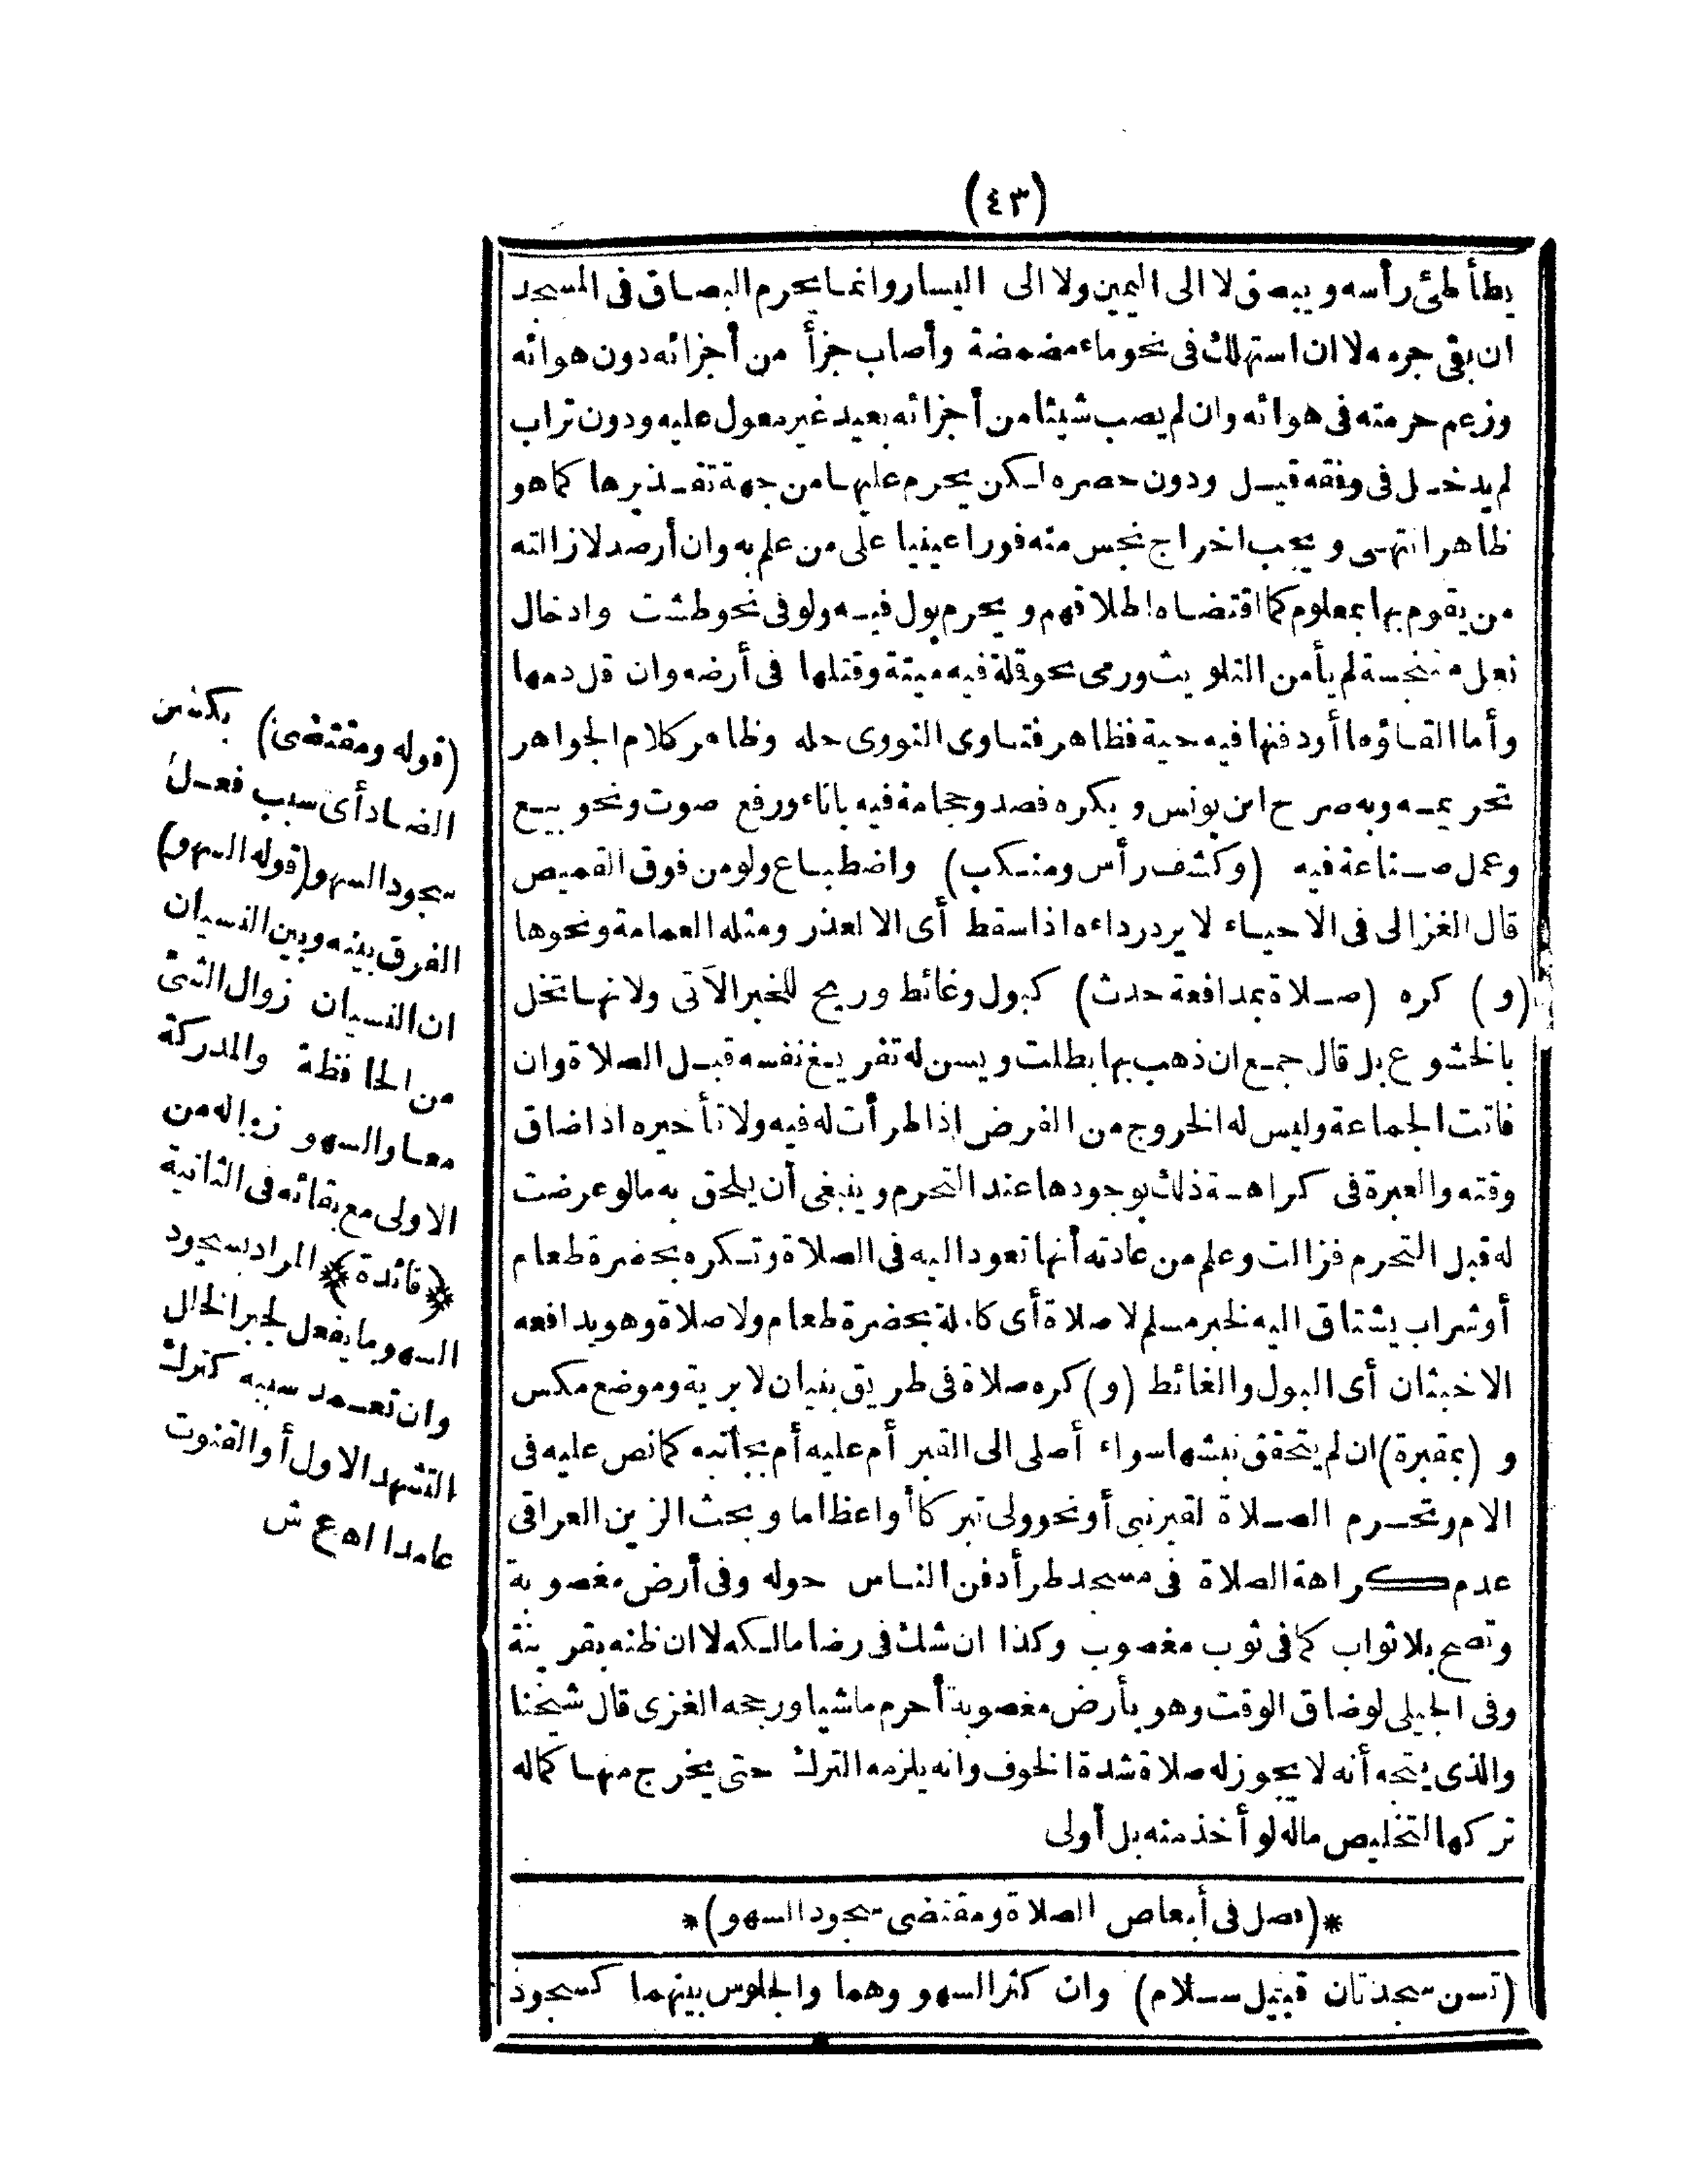 (٤٣)
يطأطئ رأسه ويبصق لا الى اليمين ولا الى اليسار وانما يحرم البصاق فى المسجد
ان بقى جرمه لا ان استهلك فى نحو ماء مضمضة وأصاب جزأ من أجزائه دون هوائه
وزعم حرمته فى هوائه وان لم يصب شيئا من أجزائه بعيد غير معول عليه ودون تراب
لم يدخل فى وقفه قيل ودون حصره لكن يحرم عليها من جهة تقذيرها كما هو
ظاهر انتهى ويجب اخراج نجس منه فورا عينيا على من علم به وان أرصد لازالته
من يقوم بها بمعلوم كما اقتضاه اطلاقهم ويحرم بول فيه ولو فى نحو طشت وادخال
نعل متنجسة لم يأمن التلويث ورمى نحو قلة فيه ميتة وقتلها فى أرضه وان قل دمها
وأما القاؤها أو دفنها فيه حية فظاهر فتاوى النووى حله وظاهر كلام الجواهر
تحريمه وبه صرح ابن يونس ويكره فصد وحجامة فيه باناء ورفع صوت ونحو بيع
وعمل صناعة فيه (وكشف رأس ومنكب) واضطباع ولو من فوق القميص
قال الغزالى فى الاحياء لا يرد رداءه اذا سقط أى الا لعذر ومثله العمامة ونحوها
(و) كره (صلاة بمدافعة حدث) كبول وغائط وريح للخبر الآتى ولانها تخل
بالخشوع بل قال جمع ان ذهب بها بطلت ويسن له تفريغ نفسه قبل الصلاة وان
فاتت الجماعة وليس له الخروج من الفرض اذا طرأت له فيه ولا تأخيره اذا ضاق
وقته والعبرة فى كراهة ذلك بوجودها عند التحرم وينبغى أن يلحق به ما لو عرضت
له قبل التحرم فزالت وعلم من عادته أنها تعود اليه فى الصلاة وتكره بحضرة طعام
أو شراب يشتاق اليه لخبر مسلم لا صلاة أى كاملة بحضرة طعام ولا صلاة وهو يدافعه
الاخبثان أى البول والغائط (و) كره صلاة فى طريق بنيان لا برية وموضع مكس
و (بمقبرة) ان لم يتحقق نبشها سواء أصلى الى القبر أم عليه أم بجانبه كما نص عليه فى
الام وتحرم الصلاة لقبر نبى أو نحو ولى تبركا أو اعظاما وبحث الزين العراقى
عدم كراهة الصلاة فى مسجد طرأ دفن الناس حوله وفى أرض مغصوبة
وتصح بلا ثواب كما فى ثوب مغصوب وكذا ان شك فى رضا مالكه لا ان ظنه بقرينة
وفى الجيلى لو ضاق الوقت وهو بأرض مغصوبة أحرم ماشيا ورجحه الغزى قال شيخنا
والذى يتجه أنه لا يجوز له صلاة شدة الخوف وانه يلزمه الترك حتى يخرج منها كما له
تركها لتخليص ماله لو أخذ منه بل أولى
*(فصل فى أبعاض الصلاة ومقتضى سجود السهو)*
(تسن سجدتان قبيل سلام) وان كثر السهو وهما والجلوس بينهما كسجود
(قوله ومقتضى) بكسر
الضاد أى سبب فعل
سجود السهو (قوله السهو)
الفرق بينه وبين النسيان
ان النسيان زوال الشئ
من الحافظة والمدركة
معا والسهو زواله من
الاولى مع بقائه فى الثانية
﴿فائدة﴾ المراد بسجود
السهو ما يفعل لجبر الخلل
وان تعمد سببه كترك
التشهد الاول أو القنوت
عامدا اه ع ش